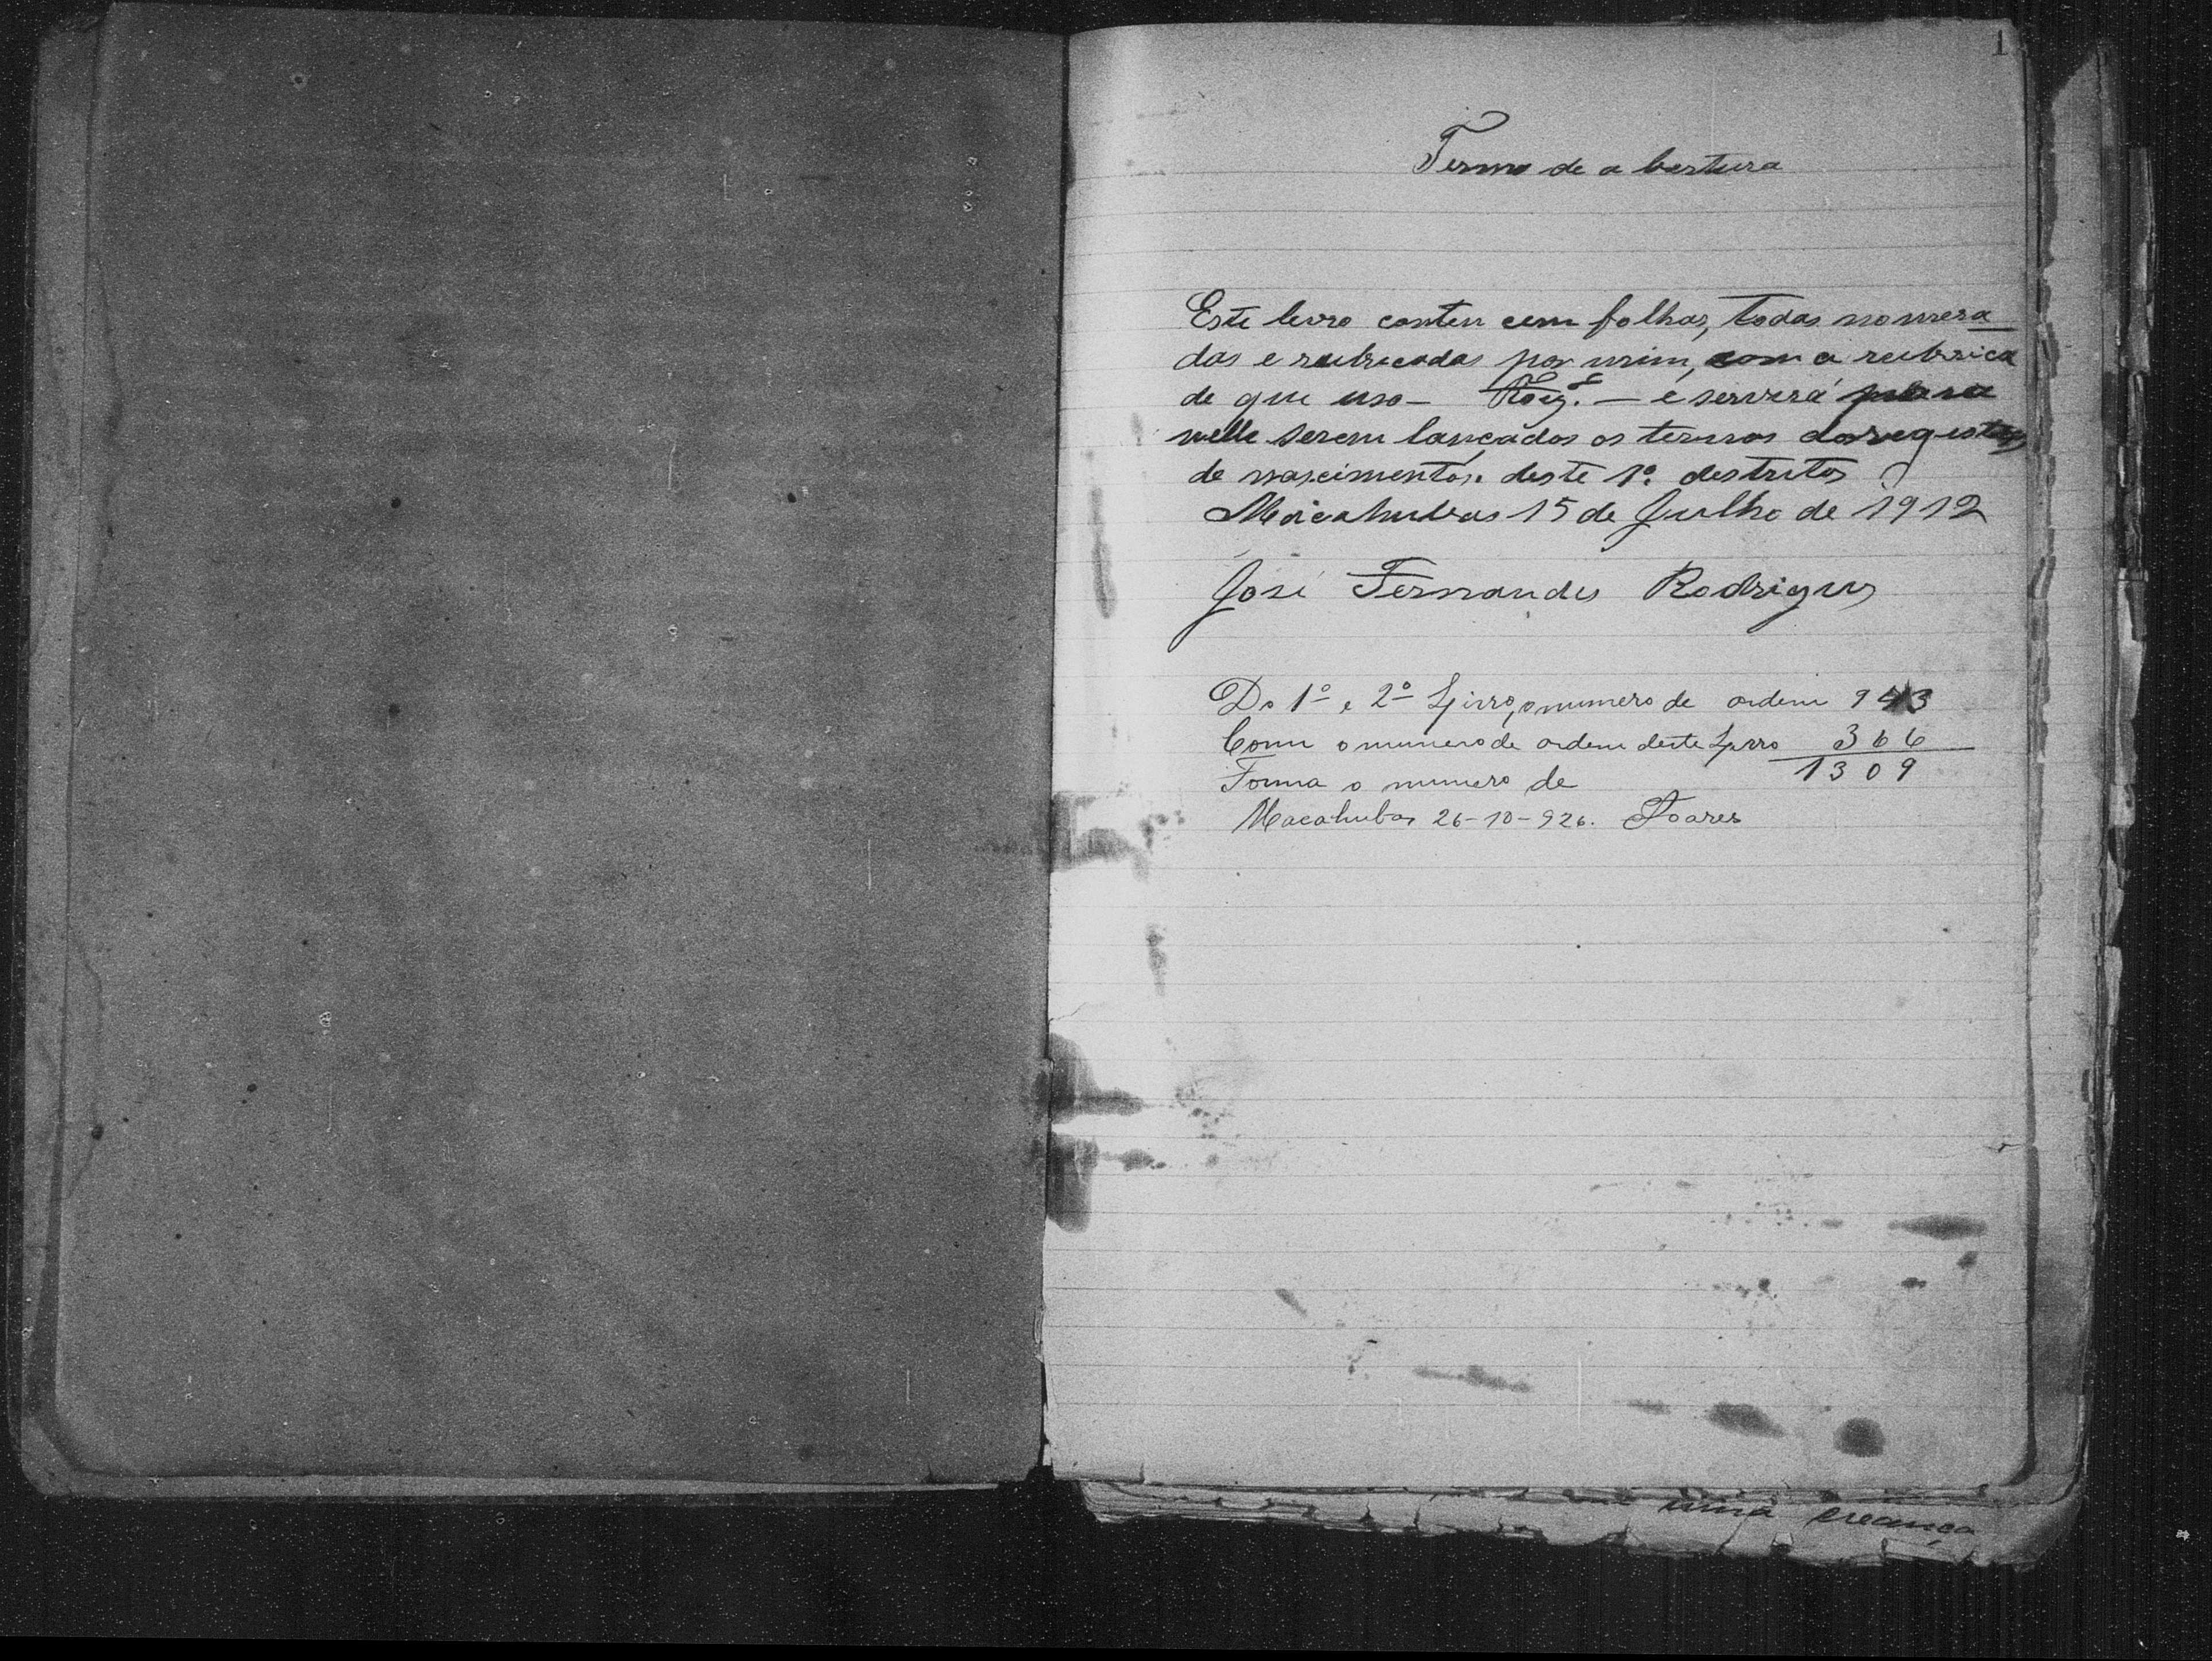 1
Termo de a bertura
Este levro conten cem folhas, todas nomera
das e rubrecadas por mim, com a rubrica
de que uso — — e serverá para
nelle serem lançados os termos dos registos
de nascimentos. deste 1º destritos
Macahubas 15 de Julho de 1912
José Fernandes Rodrigues
Do 1º e 2º Livro, o numero de ordem 943
Com o numero de ordem deste Livro 366
Forma o numero de 1309
Macahubas 26-10-926. Soares
uma creança